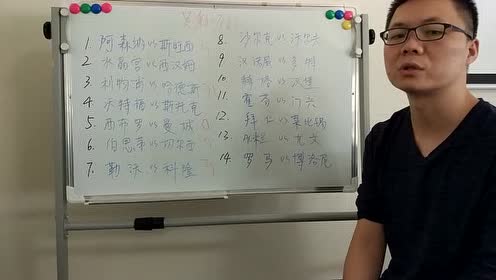 1. 阿森纳vs斯旺西
2. 水晶宫vs西汉姆
3. 利物浦vs哈德斯
4. 沃特福vs斯托克
5. 西布罗vs曼城
6. 伯恩茅vs切尔西
7. 勒沃vs科隆
8. 沙尔克vs沃尔夫
9. 汉诺威vs多特
10. 赫塔vs汉堡
11. 霍芬vs门兴
12. 拜仁vs莱比锡
13. 米兰vs尤文
14. 罗马vs博洛尼